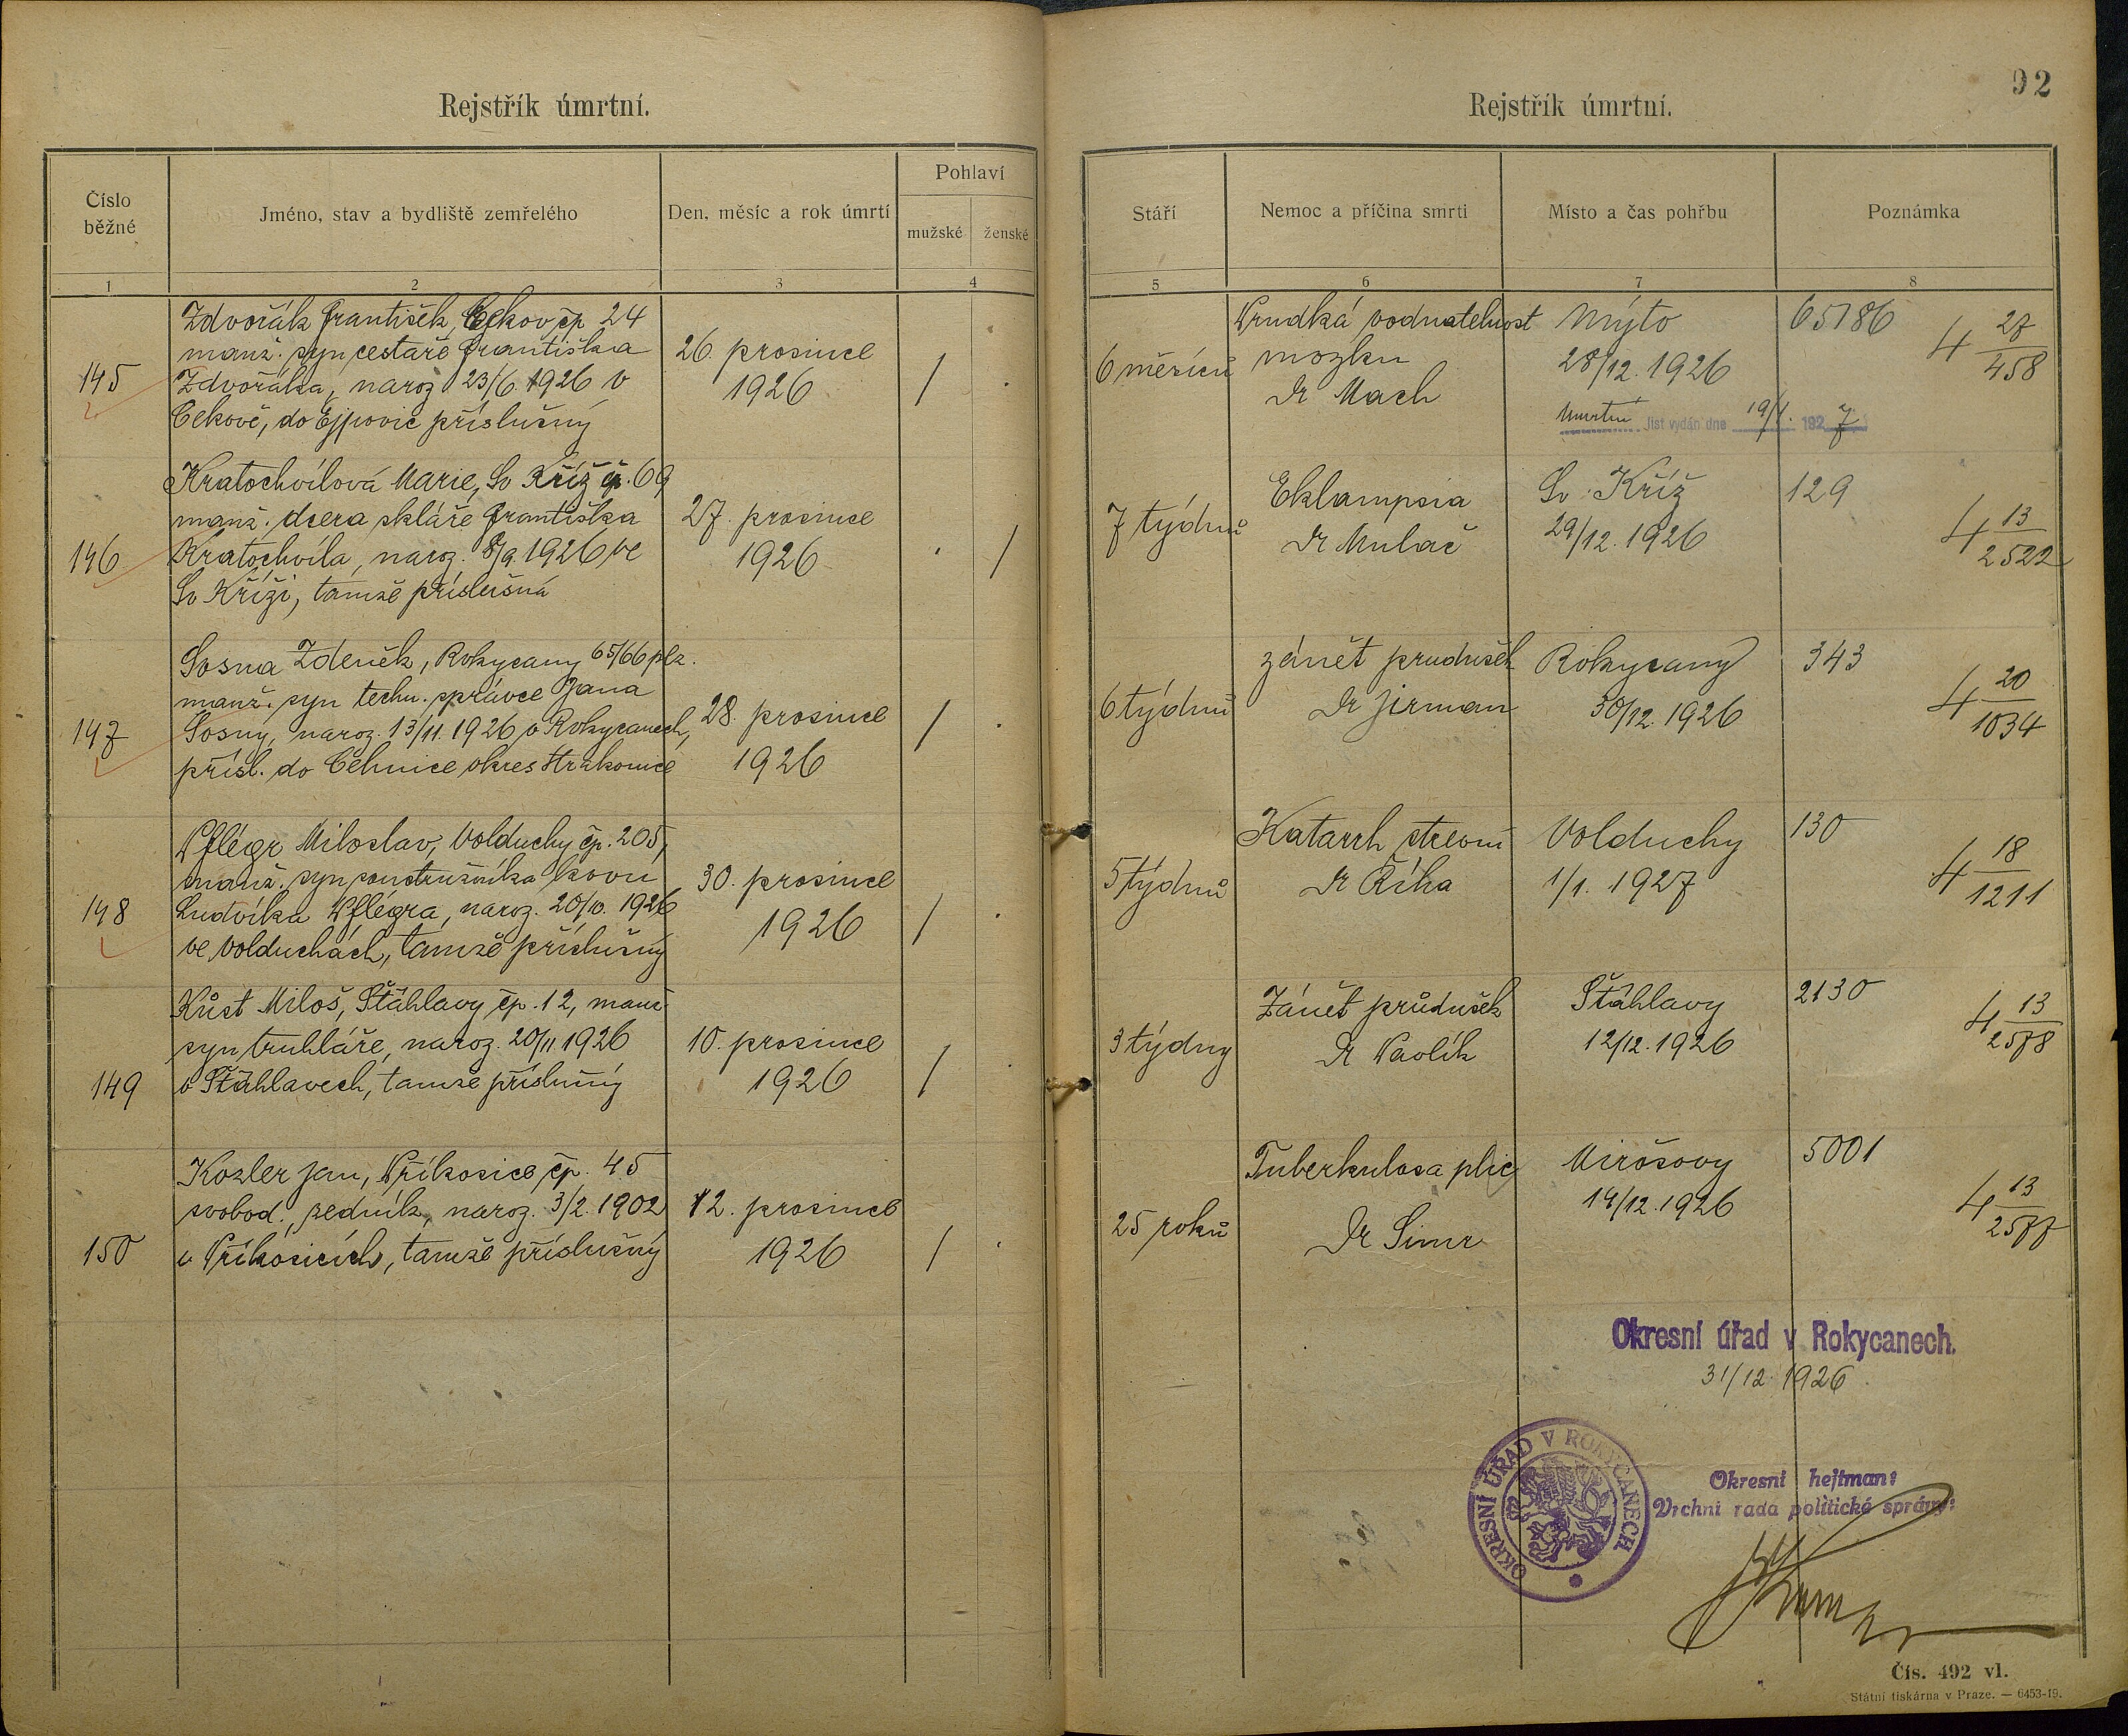 92
Rejstřík úmrtní.
Rejstřík úmrtní.
Číslo běžné
Jméno, stav a bydliště zemřelého
Den, měsíc a rok úmrtí
Pohlaví
mužské
ženské
Stáří
Nemoc a příčina smrti
Místo a čas pohřbu
Poznámka
1
2
3
4
5
6
7
8
145
Zdvořák František, Cekov čp 24
manž. syn cestáře Františka
Zdvořáka, naroz 23/6 1926 v
Cekově, do Ejpovic příslušný
26. prosince
1926
/
.
6 měsíců
Prudká vodnatelnost
mozku
Dr Mach
Mýto
28/12. 1926
Úmrtní list vydán dne 19/1. 1927
65186
4 28/458
146
Kratochvílová Marie, Sv Kříž čp. 69
manž. dcera skláře Františka
Kratochvíla, naroz. 8/9. 1926 ve
Sv Kříži, tamže příslušná
27. prosince
1926
.
/
7 týdnů
Eklampsia
Dr Mulač
Sv. Kříž
29/12. 1926
129
4 13/2522
147
Sosna Zdeněk, Rokycany 65/66 plz.
manž. syn techn. správce Jana
Sosny, naroz. 13/11. 1926 v Rokycanech,
přísl. do Cehnice okres Strakonice
28. prosince
1926
/
.
6 týdnů
zánět prudušek
Dr Jirman
Rokycany
30/12. 1926
343
4 20/1034
148
Pflégr Miloslav, Volduchy čp. 205,
manž. syn soustružníka kovu
Ludvíka Pflégra, naroz. 20/10. 1926
ve Volduchách, tamže příslušný
30. prosince
1926
/
.
5 týdnů
Katarrh střevní
Dr Říha
Volduchy
1/1. 1927
130
4 18/1211
149
Kůst Miloš, Šťáhlavy čp. 12, manž
syn truhláře, naroz. 20/11 1926
v Šťáhlavech, tamže příslušný
10. prosince
1926
/
.
3 týdny
Zánět průdušek
Dr Pavlík
Šťáhlavy
12/12. 1926
2130
4 13/2578
150
Kozler Jan, Příkosice čp. 45
svobod., zedník, naroz. 3/2. 1902
v Příkosicích, tamže příslušný
12. prosince
1926
/
.
25 roků
Tuberkulosa plic
Dr Simr
Mirošovy
14/12. 1926
5001
4 13/2577
Okresní úřad v Rokycanech.
31/12 1926.
OKRESNÍ ÚŘAD V ROKYCANECH
Okresní hejtman:
Vrchní rada politické správy:
Čís. 492 vl.
Státní tiskárna v Praze. — 6453-19.